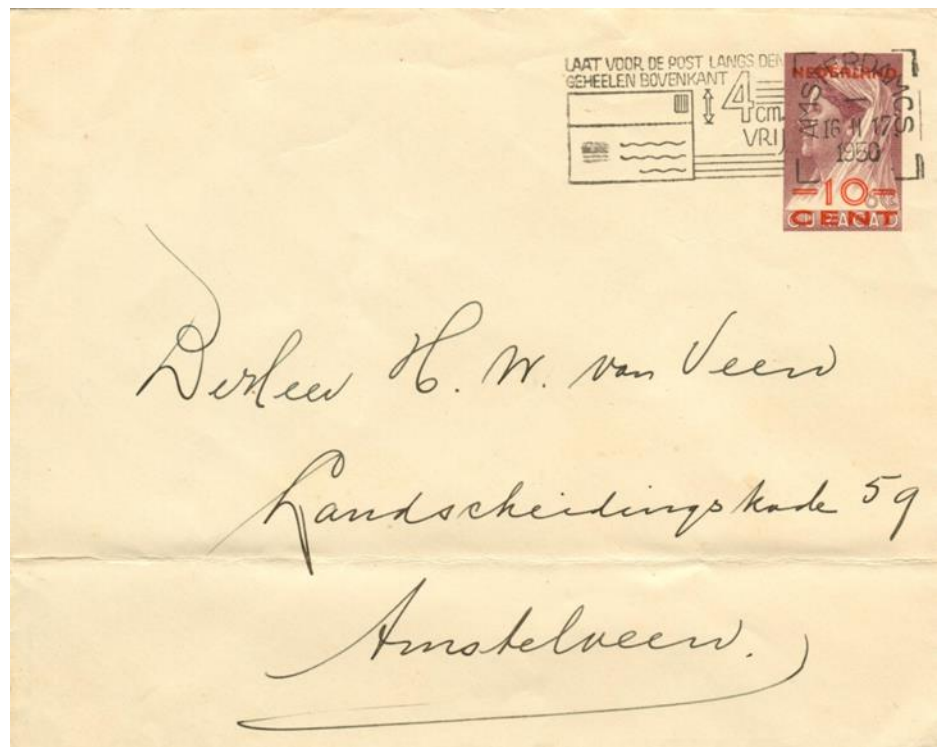 LAAT VOOR DE POST LANGS DEN
GEHEELEN BOVENKANT
4
cm
VRIJ
NEDERLAND
AMSTERDAM CS
16 II 17
1950
-10-
CENT
CURAÇAO
De Heer H. W. van Veen
Landscheidingskade 59
Amstelveen.